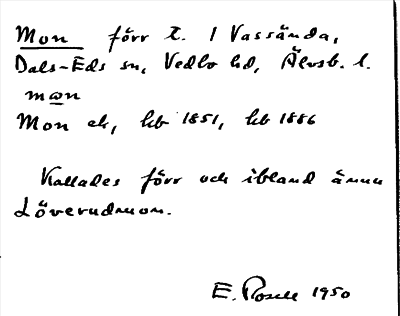 Mon förr t. 1 Vassända,
Dals-Eds sn, Vedbo hd, Älvsb. l.
mɷn
Mon ek, hb 1851, hb 1886
Kallades förr och ibland ännu
Löverudmon.
E. Rosell 1950